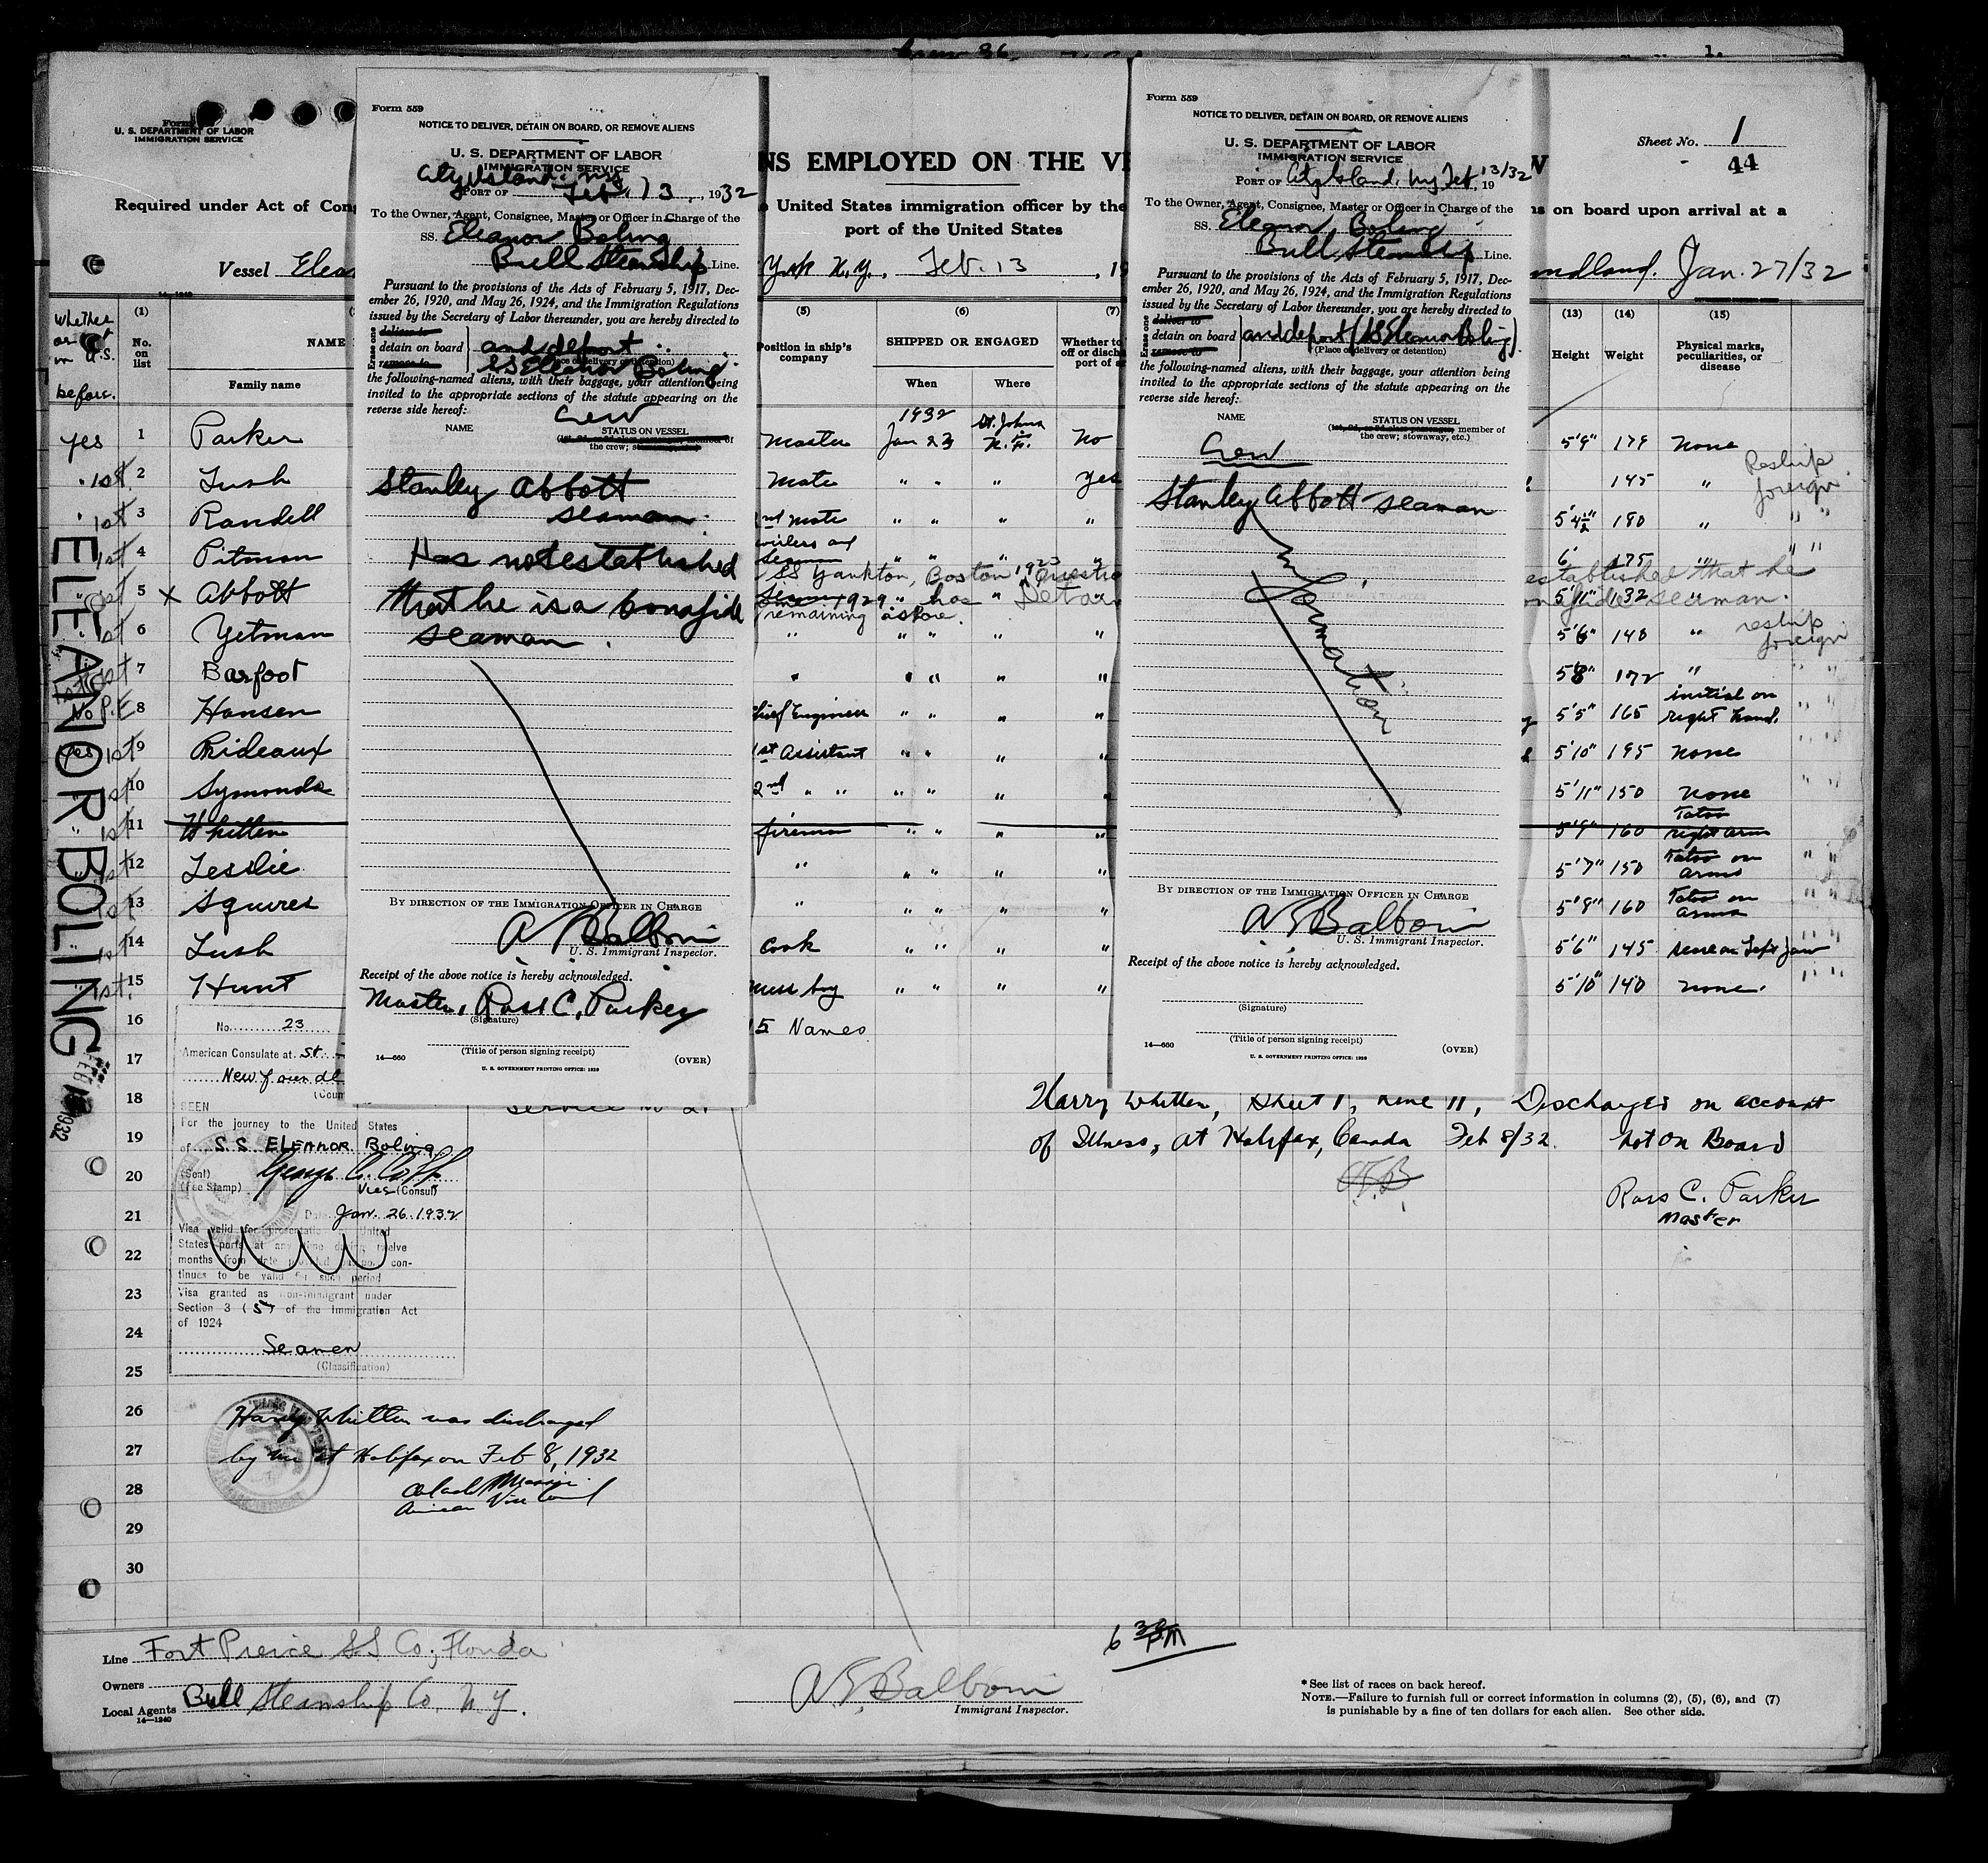 Crew 36.
1.
Form
U. S. DEPARTMENT OF LABOR
IMMIGRATION SERVICE
NS EMPLOYED ON THE VE
Sheet No. 1
44
Required under Act of Con
United States immigration officer by the
ns on board upon arrival at a
port of the United States
Vessel Elea
York N.Y., Feb. 13, 19
ndland. Jan. 27/32
14-1240
whether
or not
in U.S.
before.
(1)
No. on list
NAME
Family name
(5)
Position in ship's company
(6)
SHIPPED OR ENGAGED
When
Where
(7)
Whether to
off or disch
port of
(13)
Height
(14)
Weight
(15)
Physical marks, peculiarities, or disease
yes 1 Parker Master 1932 Jan 23 St. Johns N.F. No 5'9" 179 none
1st 2 Lush Mate " " " Yes 145 " Reship foreign
1st 3 Randell 2nd Mate " " " " 5'4½" 180 " " "
1st 4 Pitman wireless and Seaman " " " " 6' 175 " " "
SS Yankton, Boston 1923
established that he
5 x Abbott 1929 " has " 5'11" 132 " seaman.
remaining ashore.
1st 6 Yetman " " " " " 5'6" 140 " reship foreign
1st 7 Barfoot " " " " " 5'8" 172 " " "
No P.E 8 Hansen Chief Engineer " " " " 5'5" 165 initial on right hand. " "
yes 1st 9 Prideaux 1st Assistant " " " " 5'10" 195 none " "
1st 10 Symonds 2nd " " " " " " 5'11" 150 none " "
1st 11 Whitten fireman " " " " 5'9" 160 Tatoo right arm
1st 12 Lesslie " " " " " 5'7" 150 Tatoo on arms " "
1st 13 Squires " " " " " 5'8" 160 Tatoo on arms " "
1st 14 Lush Cook " " " " 5'6" 145 on Left Jaw " "
1st. 15 Hunt mess boy " " " " 5'10" 140 none. " "
16 15 Names
17
18
19
20
21
22
23
24
25
26
27
28
29
30
ELEANOR BOLING
FEB 1932
Form 559
NOTICE TO DELIVER, DETAIN ON BOARD, OR REMOVE ALIENS
U. S. DEPARTMENT OF LABOR
IMMIGRATION SERVICE
PORT OF City Island, N.Y. Feb. 13, 1932
To the Owner, Agent, Consignee, Master or Officer in Charge of the
SS. Eleanor Boling
Bull Steamship Line.
Pursuant to the provisions of the Acts of February 5, 1917, Dec-
ember 26, 1920, and May 26, 1924, and the Immigration Regulations
issued by the Secretary of Labor thereunder, you are hereby directed to
Erase one
deliver to
detain on board and deport
remove to SS Eleanor Boling.
(Place of delivery or detention)
the following-named aliens, with their baggage, your attention being
invited to the appropriate sections of the statute appearing on the
reverse side hereof:
Crew
NAME
STATUS ON VESSEL
(1st, 2d, or 3d class passenger, member of
the crew; stowaway, etc.)
Stanley Abbott
seaman.
Has not established
that he is a bonafide
seaman.
BY DIRECTION OF THE IMMIGRATION OFFICER IN CHARGE
A Balboni
U. S. Immigrant Inspector.
Receipt of the above notice is hereby acknowledged.
Master, Ross C. Parker
(Signature)
(Title of person signing receipt)
14-660
(OVER)
U. S. GOVERNMENT PRINTING OFFICE: 1929
Form 559
NOTICE TO DELIVER, DETAIN ON BOARD, OR REMOVE ALIENS
U. S. DEPARTMENT OF LABOR
IMMIGRATION SERVICE
PORT OF City Island, N.Y. Feb 13/32, 19
To the Owner, Agent, Consignee, Master or Officer in Charge of the
SS. Eleanor Boling
Bull Steamship Line.
Pursuant to the provisions of the Acts of February 5, 1917, Dec-
ember 26, 1920, and May 26, 1924, and the Immigration Regulations
issued by the Secretary of Labor thereunder, you are hereby directed to
Erase one
deliver to
detain on board and deport (SS Eleanor Boling).
remove to
(Place of delivery or detention)
the following-named aliens, with their baggage, your attention being
invited to the appropriate sections of the statute appearing on the
reverse side hereof:
NAME
STATUS ON VESSEL
(1st, 2d, or 3d class passenger, member of
the crew; stowaway, etc.)
Crew
Stanley Abbott seaman
Information
BY DIRECTION OF THE IMMIGRATION OFFICER IN CHARGE
A Balboni
U. S. Immigrant Inspector.
Receipt of the above notice is hereby acknowledged.
(Signature)
(Title of person signing receipt)
14-660
(OVER)
U. S. GOVERNMENT PRINTING OFFICE: 1929
No. 23
American Consulate at St.
Newfoundl
(Coun
SEEN
For the journey to the United States
of S.S. ELEANOR Boling
(Seal)
(Fee Stamp)
George C.
Vice (Consul)
Date Jan. 26. 1932
Visa valid for presentation United
States ports at any time during twelve
months from date provided con-
tinues to be valid for such period
Visa granted as non-immigrant under
Section 3 (5) of the Immigration Act
of 1924
Seamen
(Classification)
Harry Whitten, Sheet 1, Line 11, Discharged on account
of Illness, at Halifax, Canada Feb 8/32. Not on Board
Ross C. Parker
Master
Harry Whitten was discharged
by me at Halifax on Feb 8, 1932
American Vice Consul
6 30 PM
Line Fort Pierce SS Co; Florida
Owners
Local Agents Bull Steamship Co. N.Y.
14-1240
A Balboni
Immigrant Inspector.
* See list of races on back hereof.
NOTE.—Failure to furnish full or correct information in columns (2), (5), (6), and (7)
is punishable by a fine of ten dollars for each alien. See other side.